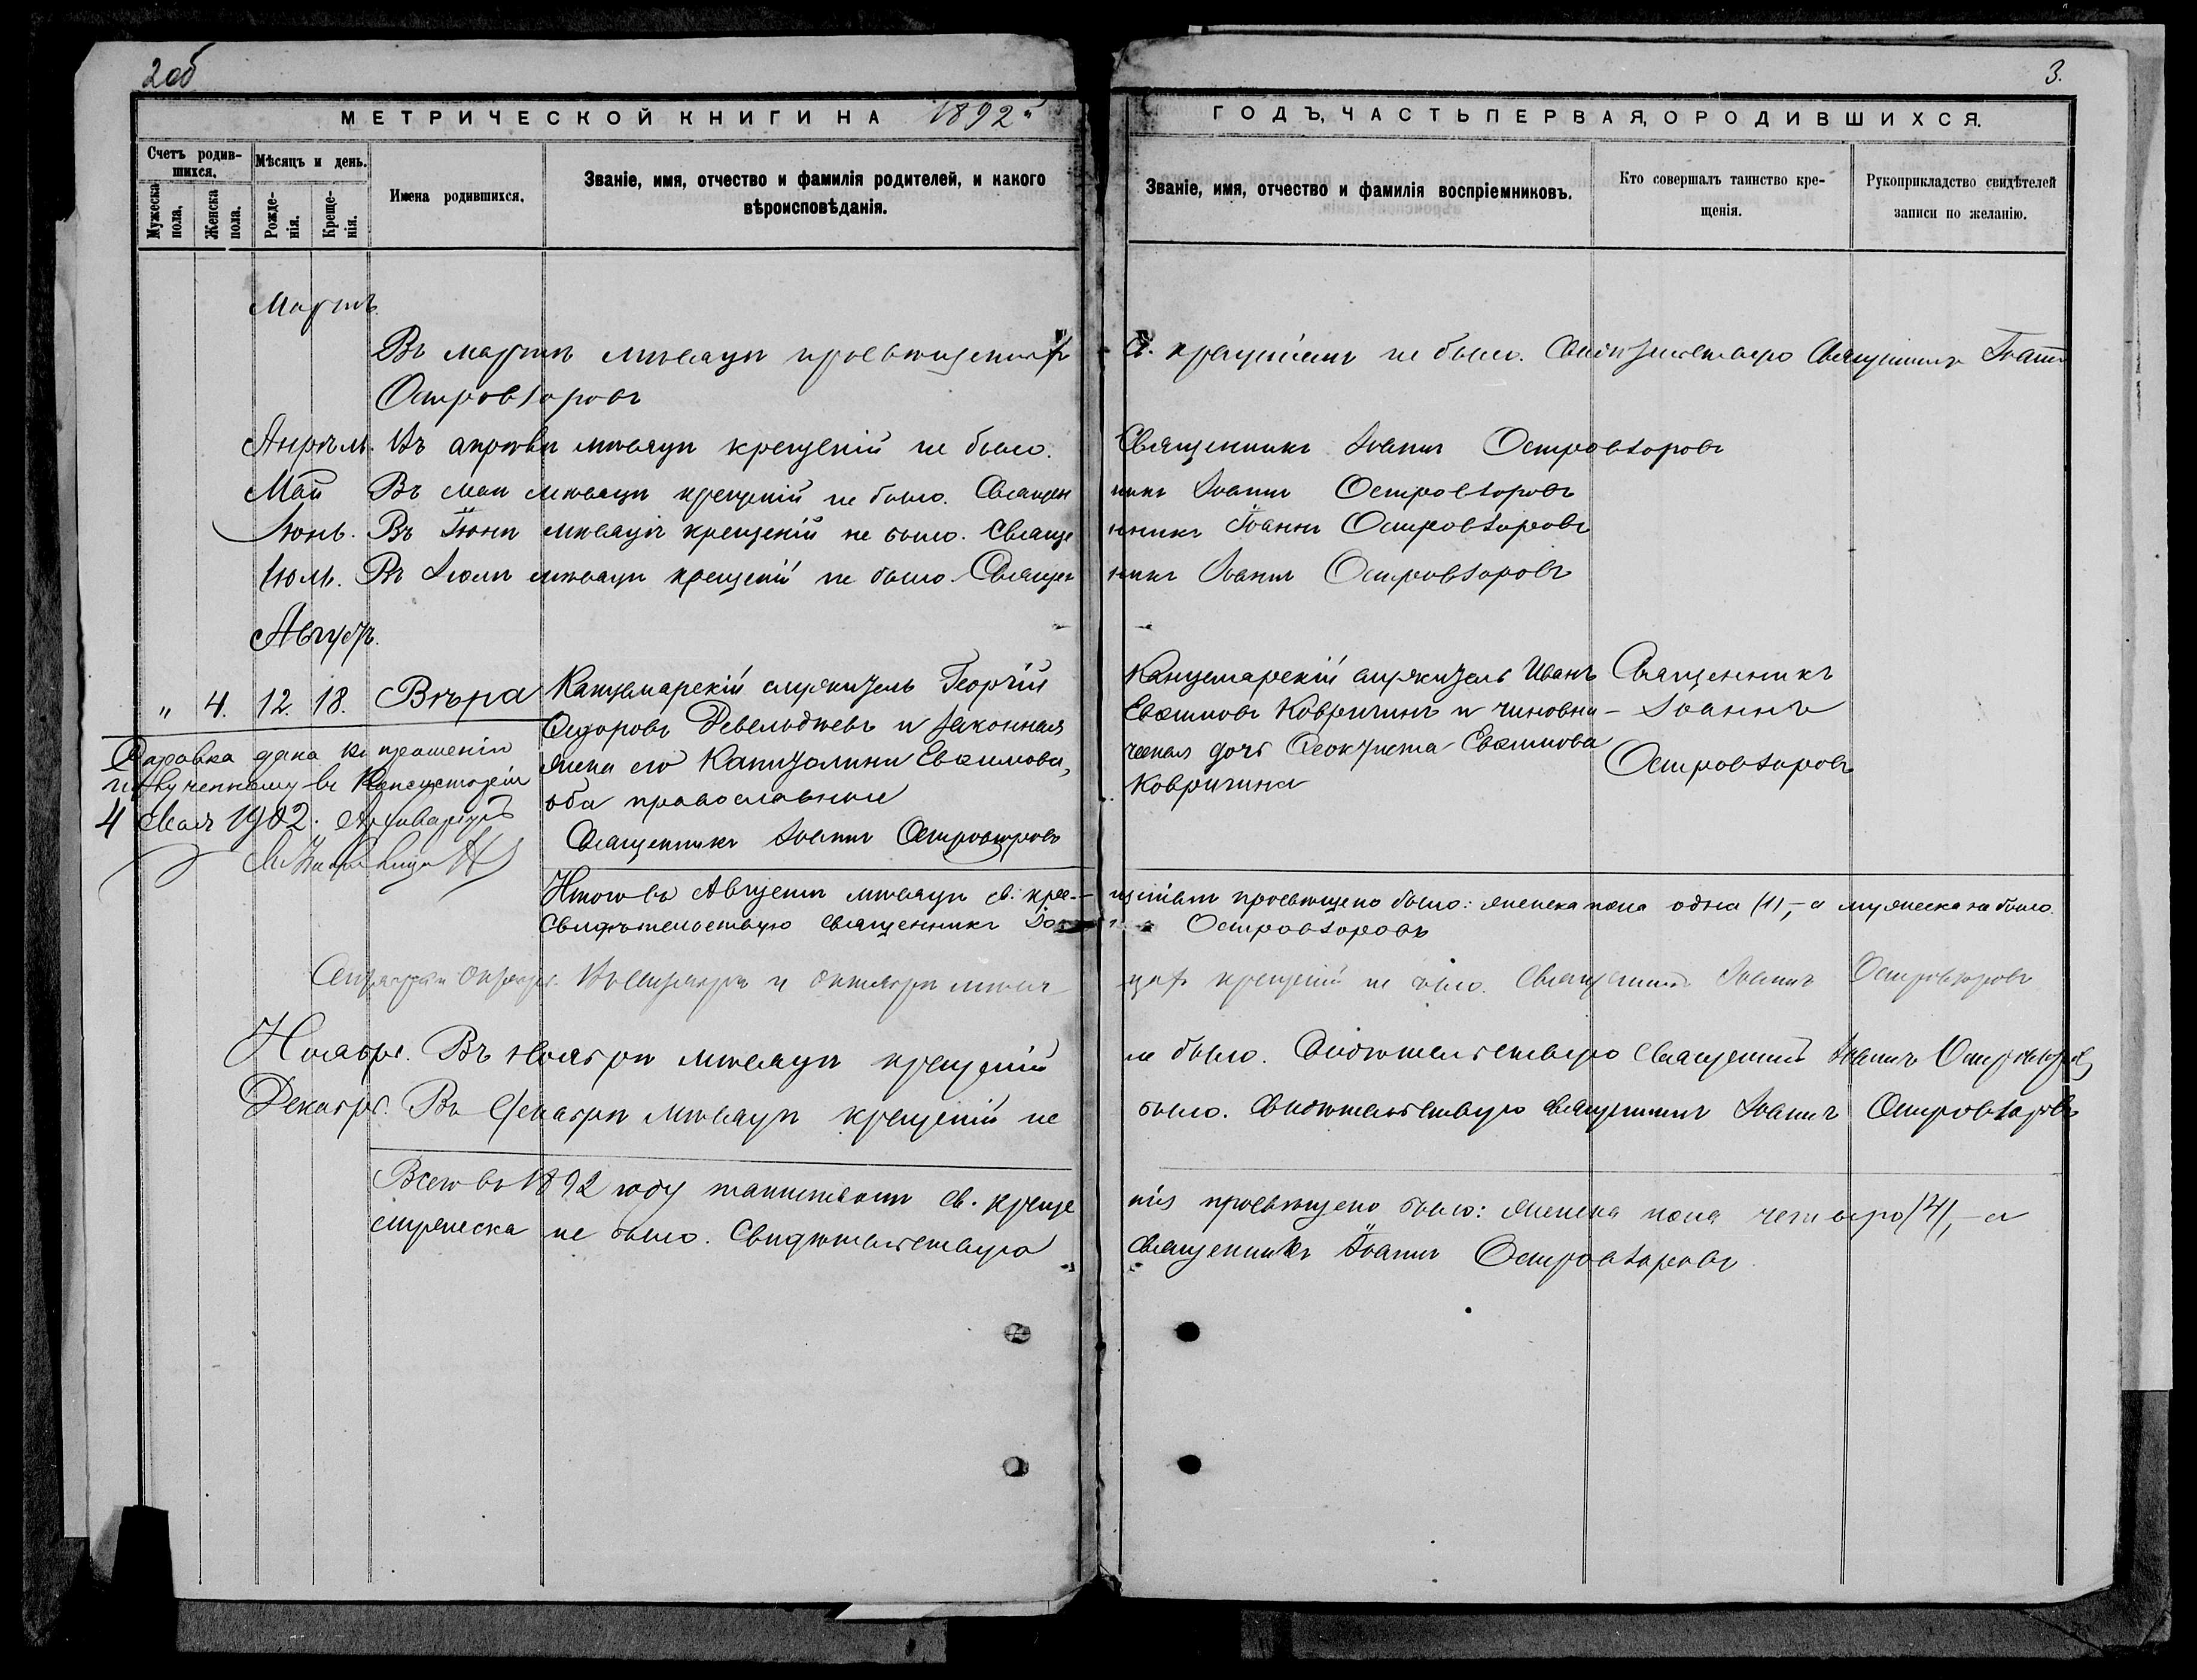 2об
МЕТРИЧЕСКОЙ КНИГИ НА 1892й
Счетъ родившихся.
Мужеска пола.
Женска пола.
Мѣсяцъ и день.
Рожденія.
Крещенія.
Имена родившихся.
Званіе, имя, отчество и фамилія родителей, и какого вѣроисповѣданія.
3.
ГОДЪ, ЧАСТЬ ПЕРВАЯ, О РОДИВШИХСЯ.
Званіе, имя, отчество и фамилія воспріемниковъ.
Кто совершалъ таинство крещенія.
Рукоприкладство свидѣтелей записи по желанію.
Мартъ.
Въ мартѣ мѣсяцѣ просвѣщенныхъ св. крещеніемъ не было. Свидѣтельствую Священникъ Іоаннъ
Островзоровъ
Апрѣль. Въ апрѣлѣ мѣсяцѣ крещеній не было. Священникъ Іоаннъ Островзоровъ
Май Въ маѣ мѣсяцѣ крещеній не было. Священникъ Іоаннъ Островзоровъ
Іюнь. Въ Іюнѣ мѣсяцѣ крещеній не было. Священникъ Іоаннъ Островзоровъ
Іюль. Въ Іюлѣ мѣсяцѣ крещеній не было. Священникъ Іоаннъ Островзоровъ
Августъ.
" 4. 12. 18. Вѣра
Канцелярскій служитель Георгій
Ѳедоровъ и законная
жена его Капитолина Евѳимова,
оба православные
Священникъ Іоаннъ Островзоровъ
Канцелярскій служитель Иванъ
Евѳимовъ Ковригинъ и чиновни-
ческая дочь Ѳеоктиста Евѳимова
Ковригина
Священникъ
Іоаннъ
Островзоровъ
дана по прошенію
въ Консисторіи
4 Мая 1902. Архиваріусъ
Итого въ Августѣ мѣсяцѣ св. крещеніемъ просвѣщено было: женска пола одна (1), – а мужеска не было.
Свидѣтельствую священникъ Іоаннъ Островзоровъ
Сентябрь и Октябрь. Въ Сентябрѣ и Октябрѣ мѣсяцахъ крещеній не было. Священникъ Іоаннъ Островзоровъ
Ноябрь. Въ Ноябрѣ мѣсяцѣ крещеній не было. Свидѣтельствую Священникъ Іоаннъ Островзоровъ
Декабрь. Въ Декабрѣ мѣсяцѣ крещеній не было. Свидѣтельствую священникъ Іоаннъ Островзоровъ
Всего въ 1892 году таинствомъ св. крещенія просвѣщено было: женска пола четверо (4), – а
мужеска не было. Свидѣтельствую священникъ Іоаннъ Островзоровъ.